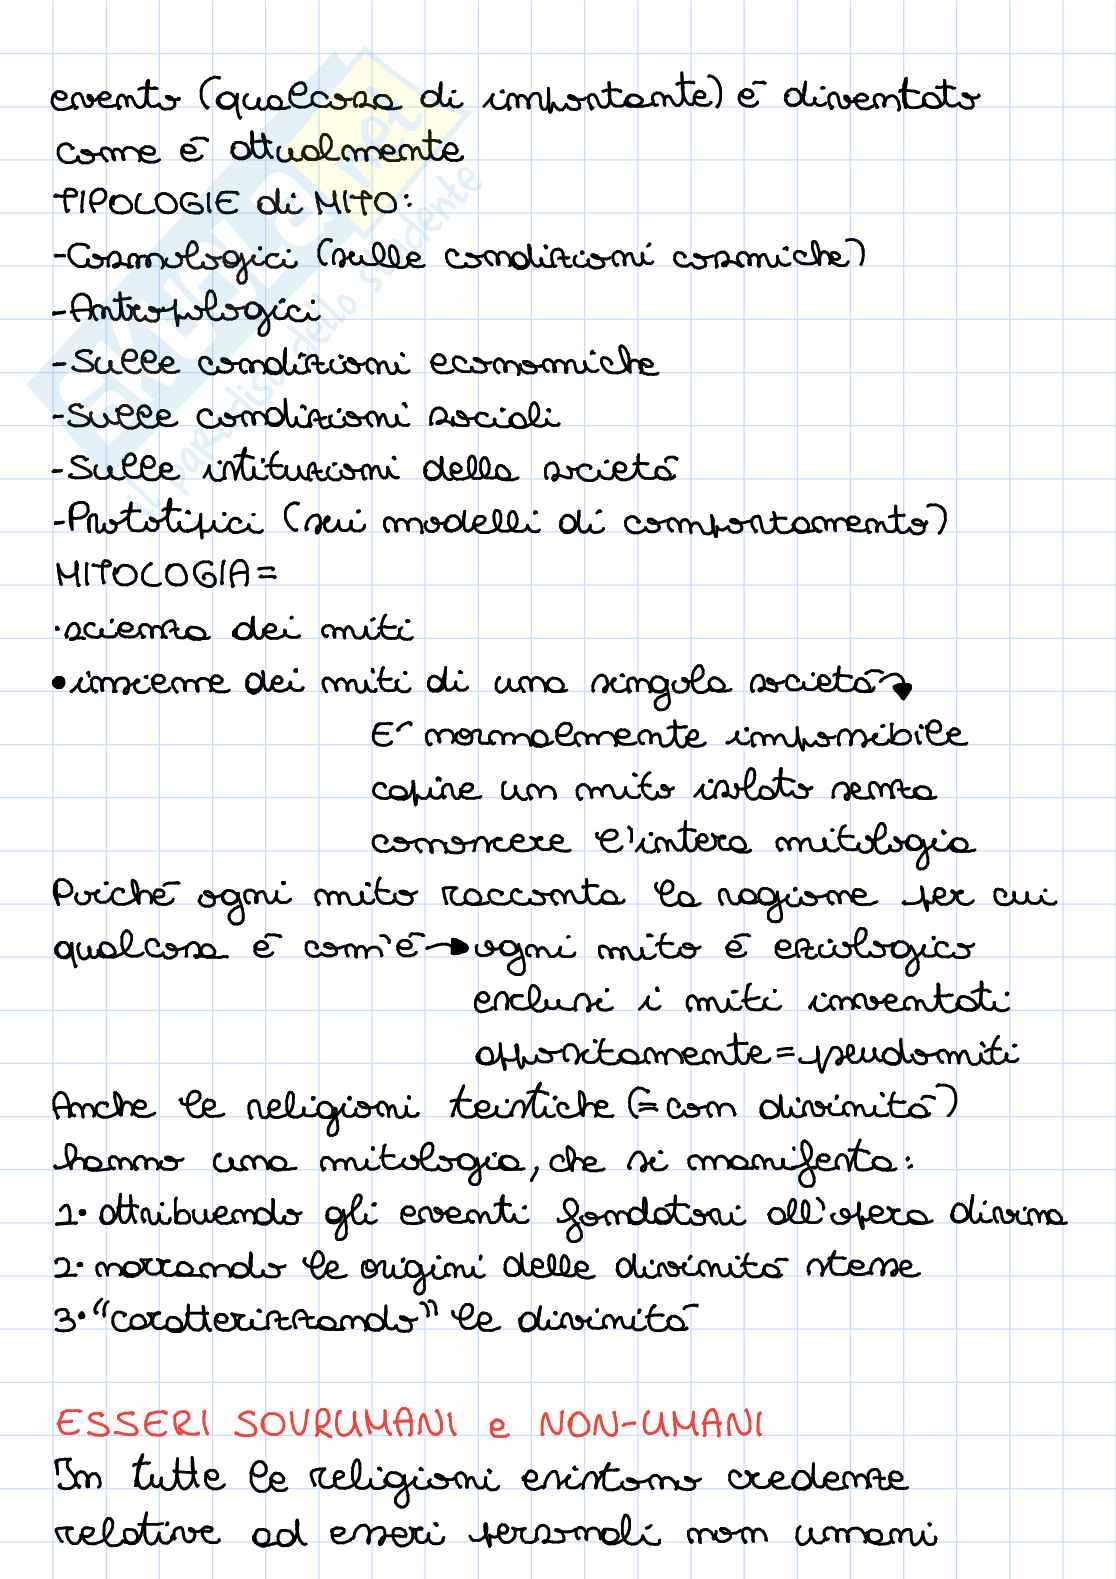 evento (qualcosa di importante) è diventato
come è attualmente
TIPOLOGIE di MITO:
-Cosmologici (sulle condizioni cosmiche)
-Antropologici
-Sulle condizioni economiche
-Sulle condizioni sociali
-Sulle istituzioni della società
-Prototipici (sui modelli di comportamento)
MITOLOGIA=
·scienza dei miti
•insieme dei miti di una singola società
E' normalmente impossibile
capire un mito isolato senza
conoscere l'intera mitologia
Poiché ogni mito racconta la ragione per cui
qualcosa è com'è→ogni mito è eziologico
esclusi i miti inventati
appositamente=pseudomiti
Anche le religioni teistiche (=con divinità)
hanno una mitologia, che si manifesta:
1· attribuendo gli eventi fondatori all'opera divina
2· narrando le origini delle divinità stesse
3·"caratterizzando" le divinità
ESSERI SOVRUMANI e NON-UMANI
In tutte le religioni esistono credenze
relative ad esseri personali non umani
SKUOLA.net
il paradiso dello studente